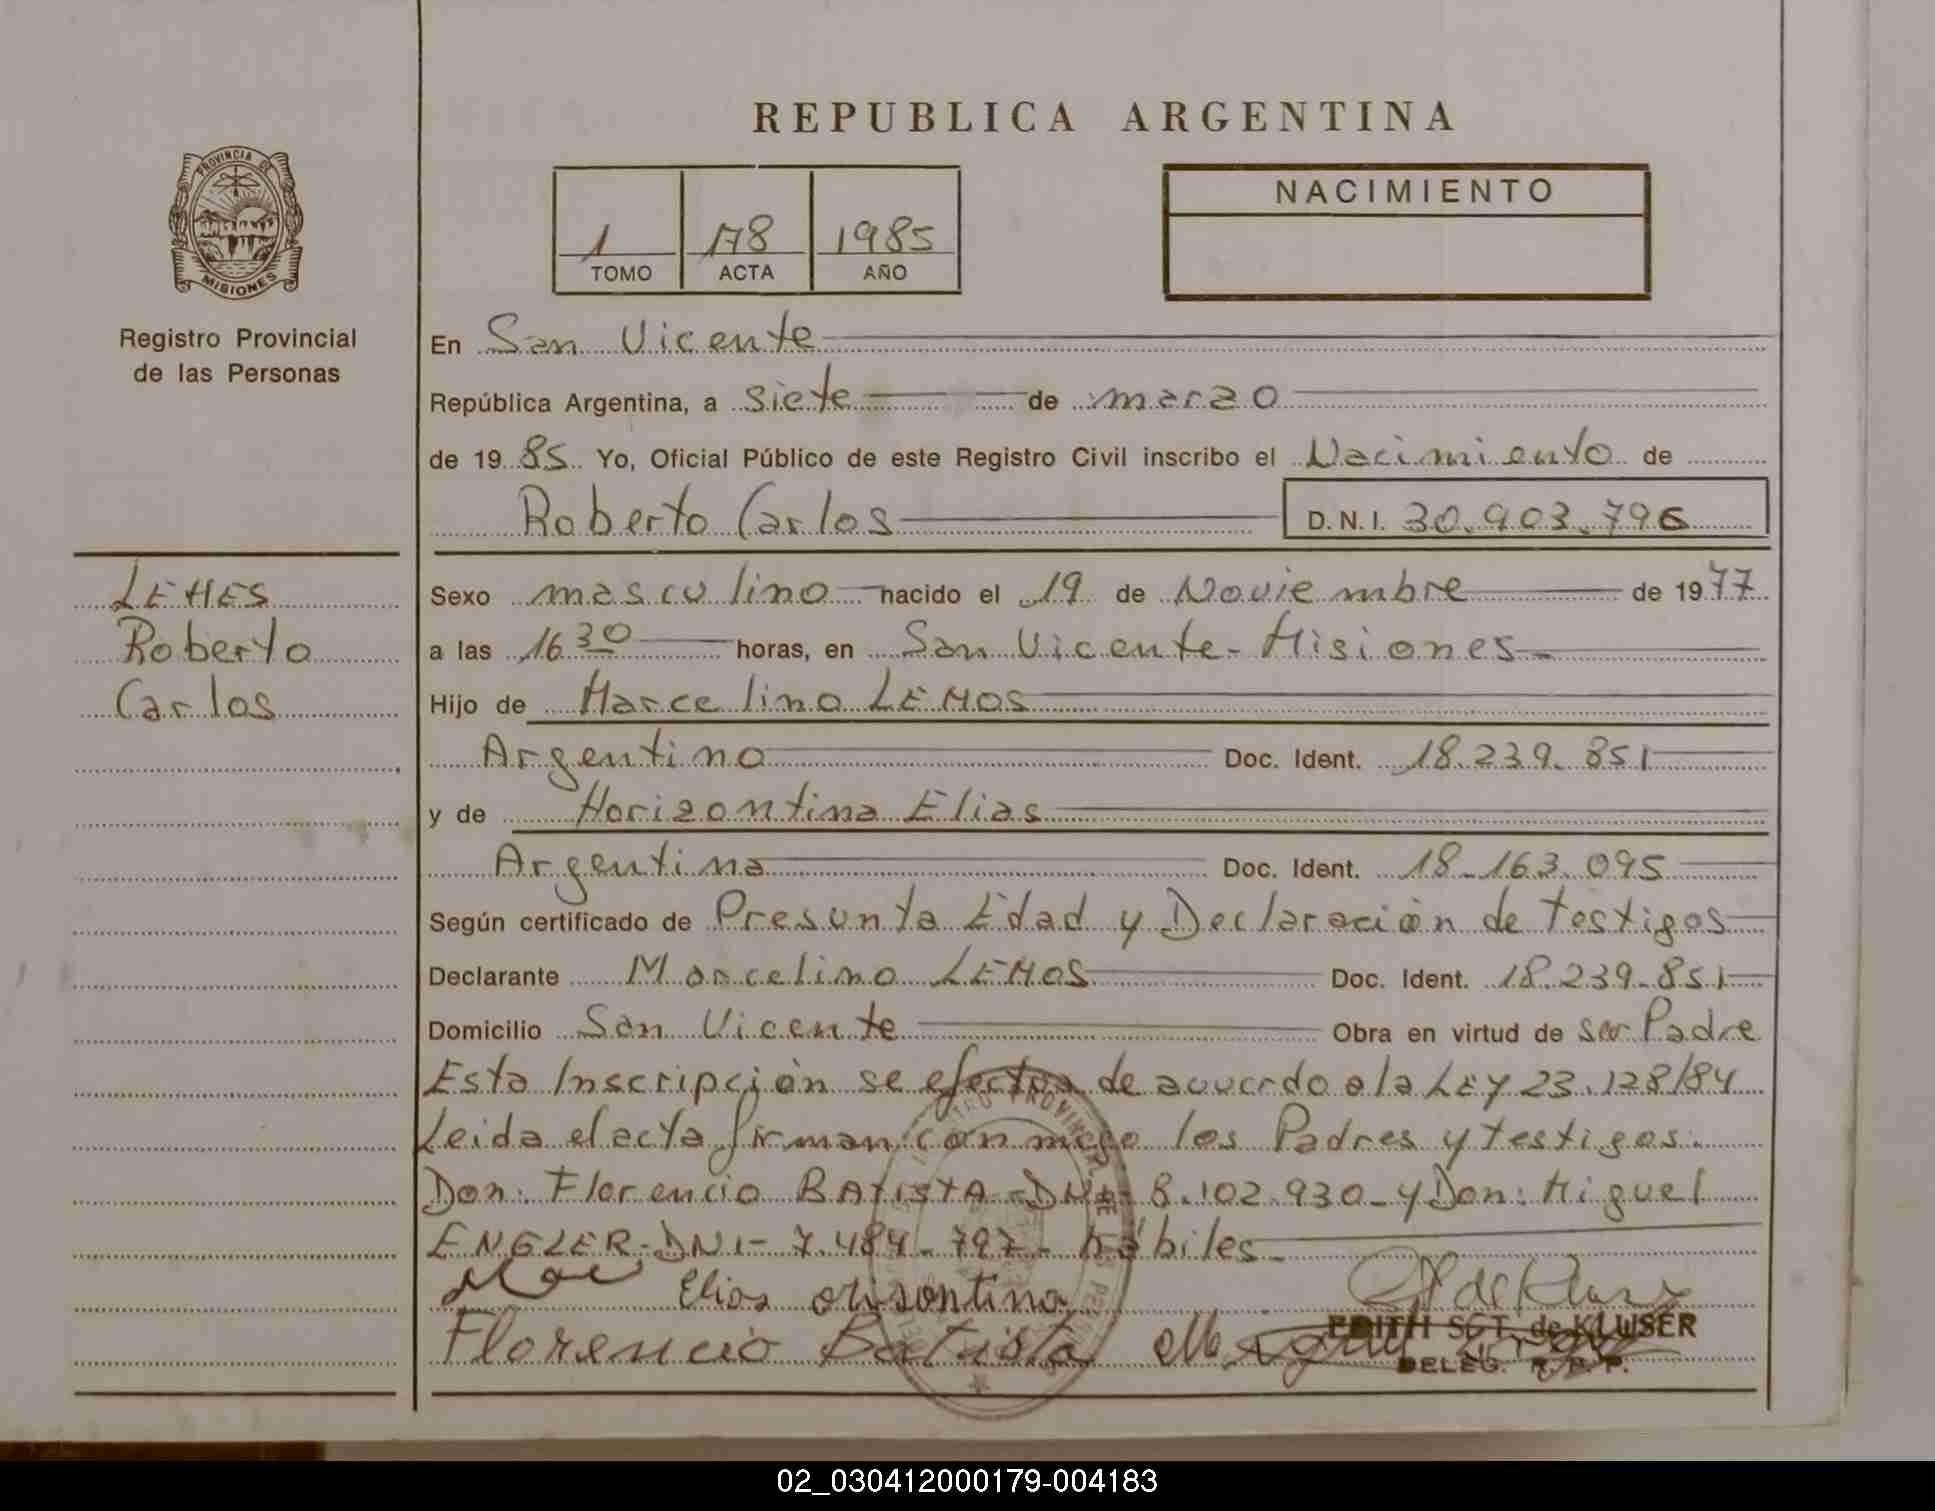 REPUBLICA ARGENTINA
PROVINCIA DE
MISIONES
Registro Provincial
de las Personas
1 178 1985
TOMO ACTA AÑO
NACIMIENTO
En San Vicente
República Argentina, a siete de marzo
de 19 85 Yo, Oficial Público de este Registro Civil inscribo el Nacimiento de
Roberto Carlos D.N.I. 30.903.796
LEMES
Roberto
Carlos
Sexo masculino nacido el 19 de Noviembre de 1977
a las 16 30 horas, en San Vicente - Misiones
Hijo de Marcelino LEMOS
Argentino Doc. Ident. 18.239.851
y de Horizontina Elias
Argentina Doc. Ident. 18.163.095
Según certificado de Presunta Edad y Declaración de testigos
Declarante Marcelino LEMOS Doc. Ident. 18.239.851
Domicilio San Vicente Obra en virtud de ser Padre
Esta Inscripción se efectua de acuerdo a la LEY 23.128/84
Leida el acta firman conmigo los Padres y testigos.
Don: Florencio BATISTA - DNI - 8.102.930 - y Don: Miguel
ENGLER - DNI - 7.484.797 - hábiles -
Elias orisontina
Florencio Batista
EDITH SGT. de KLUSER
DELEG. R. P. P.
02_030412000179-004183